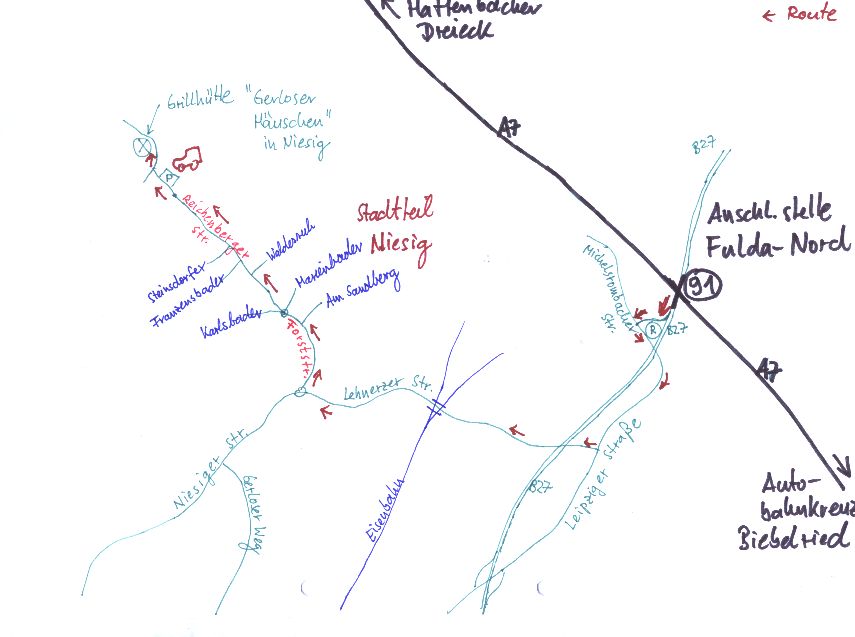 Hattenbacher
Dreieck
← Route
Grillhütte "Gerloser
Häuschen"
in Niesig
A7
B27
P
Reichenberger
Str.
Stadtteil
Niesig
Anschl.stelle
Fulda-Nord
91
Waldesruh
Marienbader
Am Sandberg
Steinsdorfer
Franzensbader
Karlsbader
Forststr.
Michelsrombacher
Str.
R
B27
A7
Lehnerzer Str.
Niesiger Str.
Gerloser Weg
Eisenbahn
B27
Leipziger Straße
Auto-
bahnkreuz
Biebelried